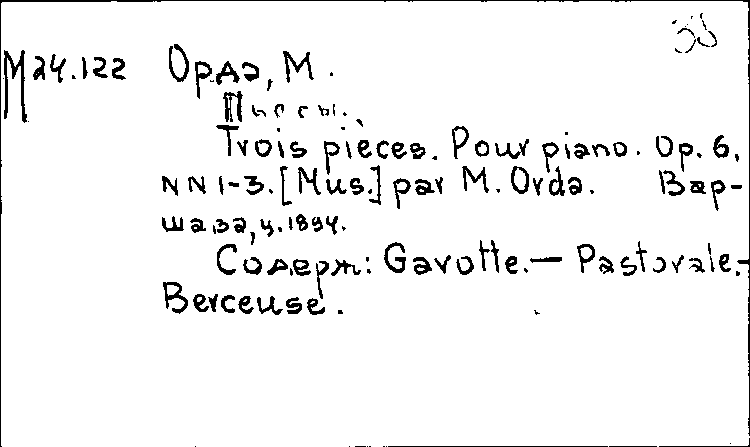 М24.122 Орда, М.
Пьесы.
Trois pièces. Pour piano. Op. 6,
NN 1-3. [Mus.] par M. Orda. Вар-
шава, ц. 1894.
Содерж: Gavotte.— Pastorale.-
Berceuse.